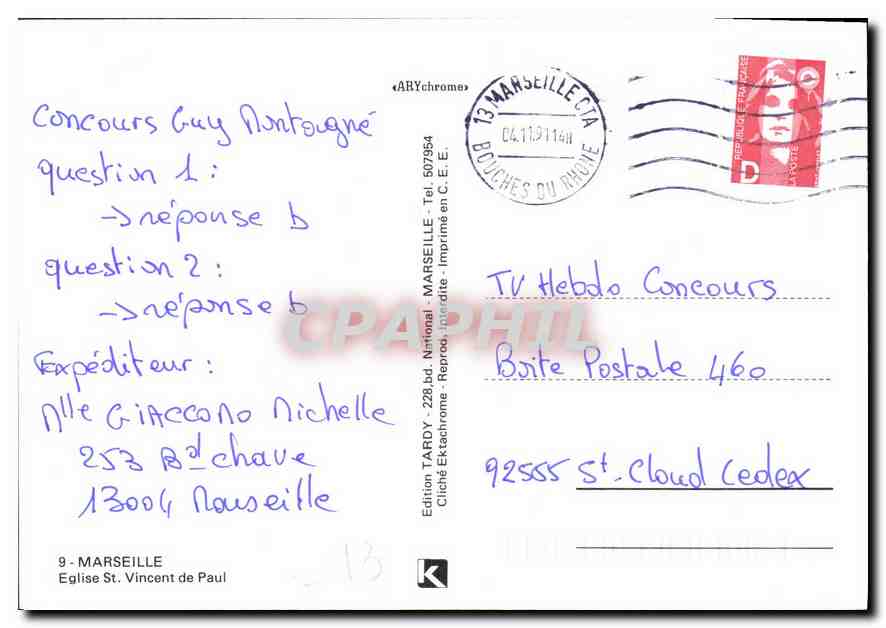 Concours Guy Montagné
question 1 :
→ réponse b
question 2 :
→ réponse b
Expéditeur :
Mlle GIACCONO Michelle
253 Bd chave
13004 Marseille
9 - MARSEILLE
Eglise St. Vincent de Paul
«ARYchrome»
Edition TARDY - 228, bd. National - MARSEILLE - Tel. 507954
Cliché Ektachrome - Reprod. Interdite - Imprimé en C. E. E.
K
13 MARSEILLE CTA
04.11.91 14H
BOUCHES DU RHONE
REPUBLIQUE FRANÇAISE
LA POSTE
D
TV Hebdo Concours
Boite Postale 460
92555 St. Cloud Cedex
CPAPHIL
13